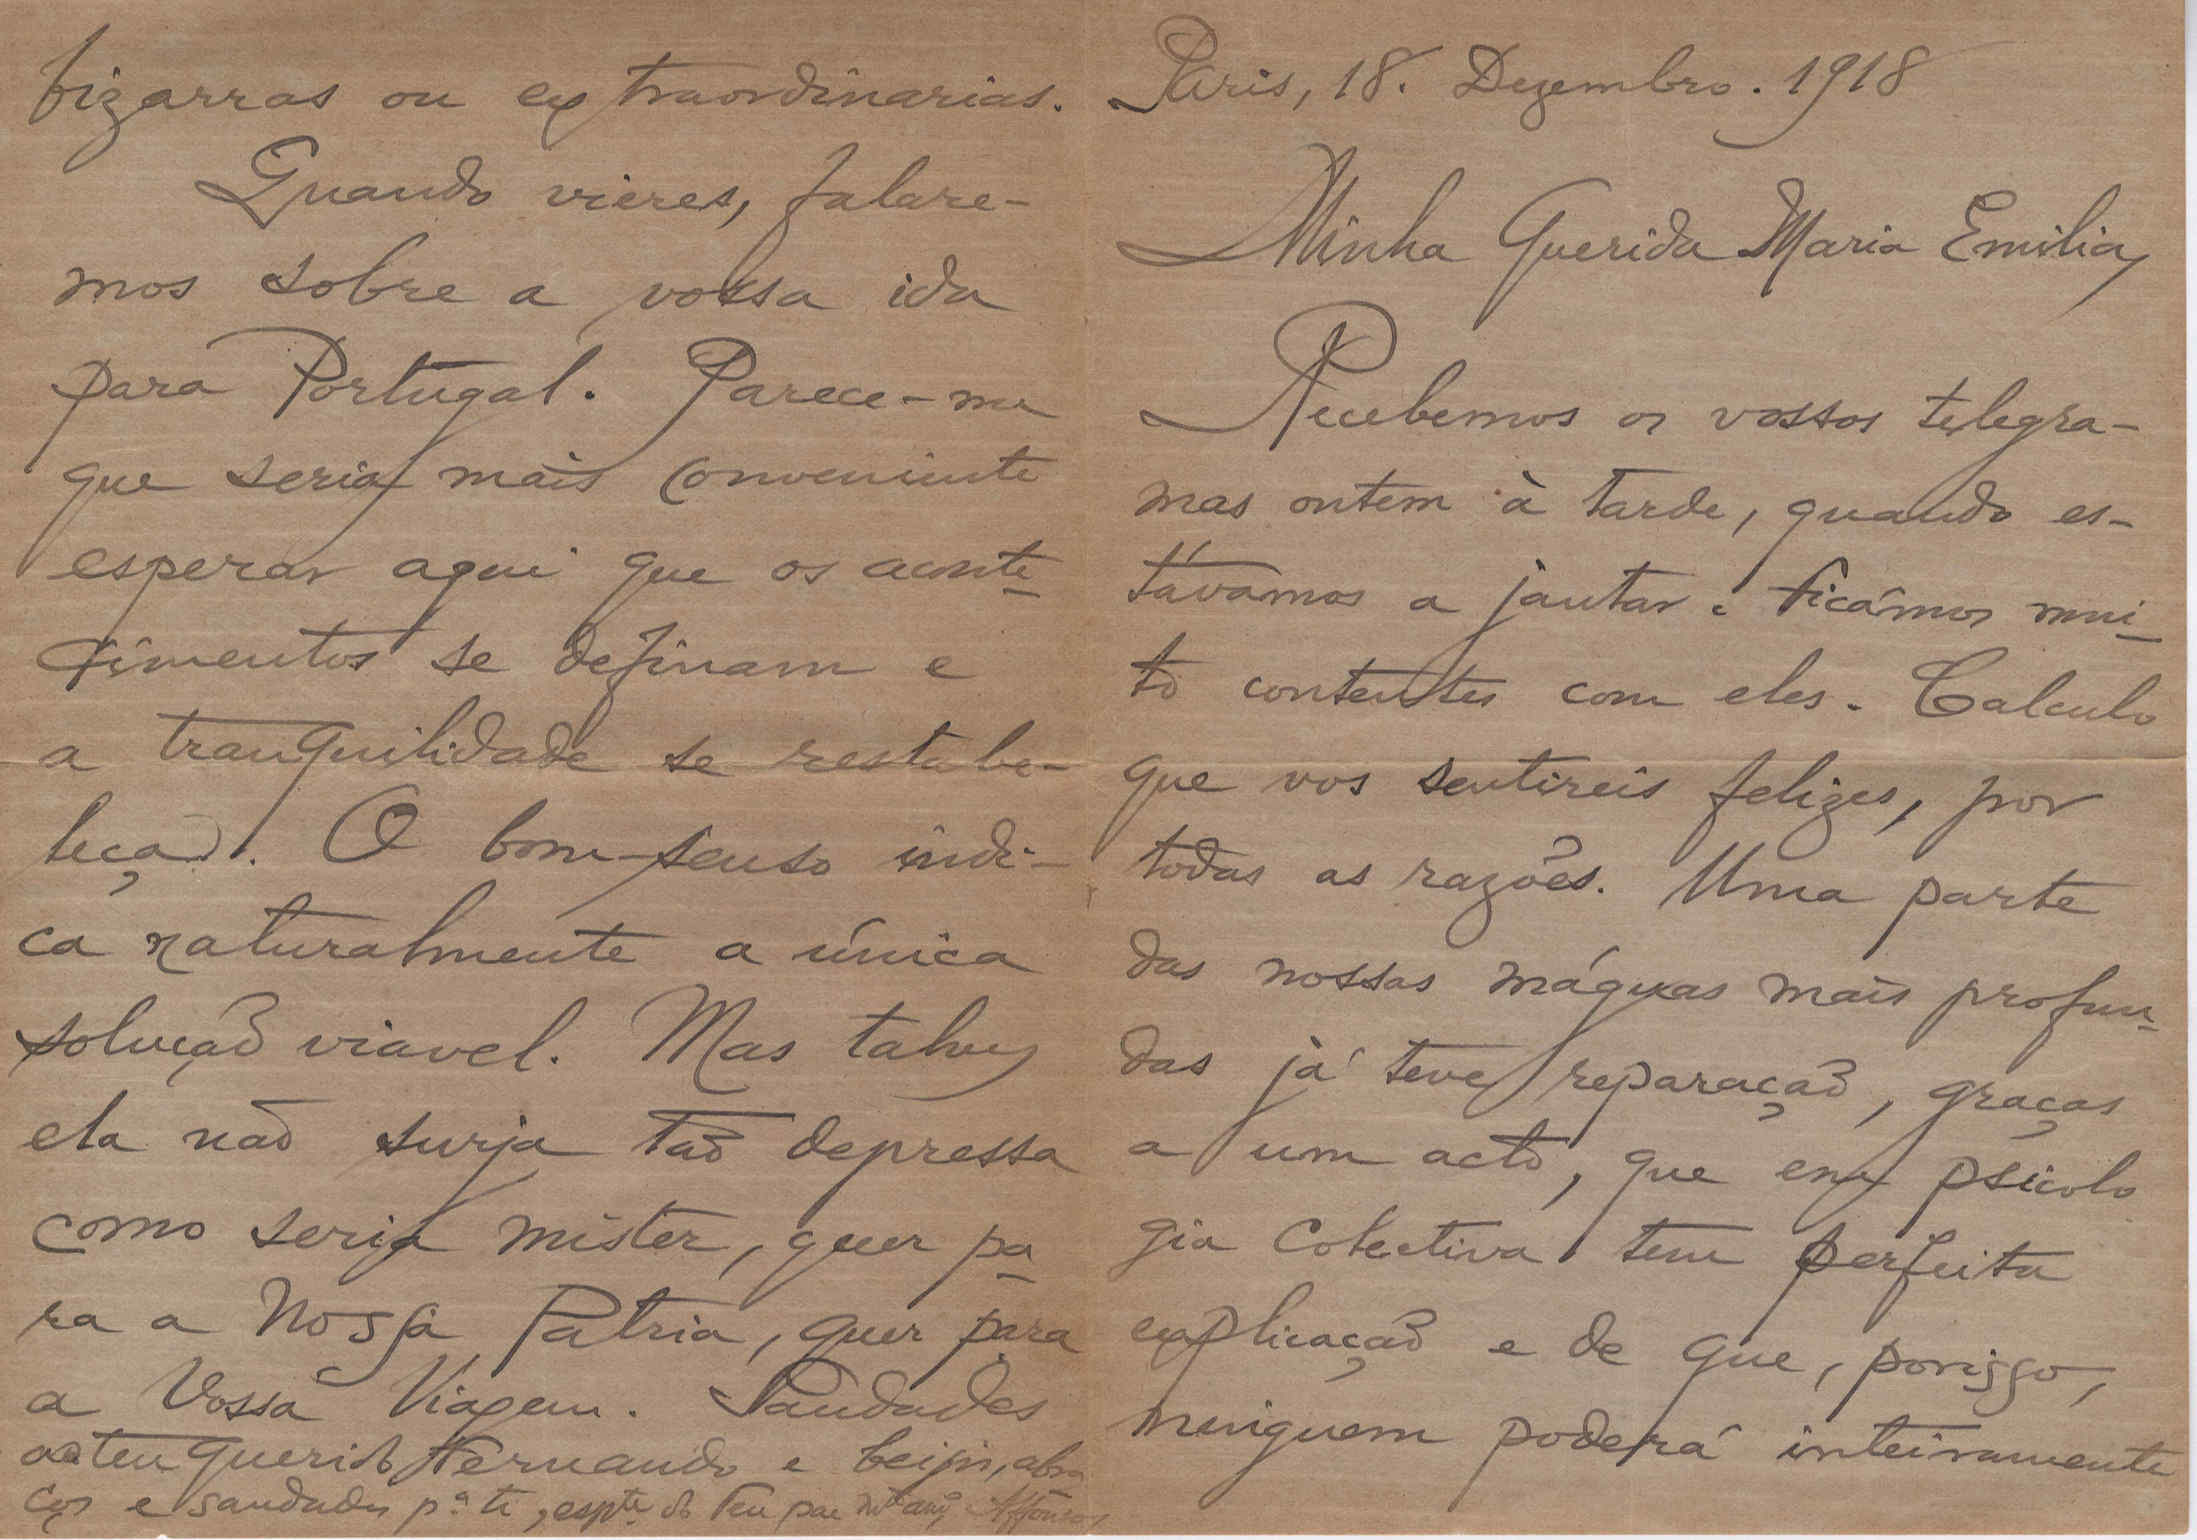 Paris, 18. Dezembro. 1918
Minha Querida Maria Emilia,
Recebemos os vossos telegra-
mas ontem à tarde, quando es-
távamos a jantar e ficámos mui-
to contentes com eles. Calculo
que vos sentireis felizes, por
todas as razões. Uma parte
das nossas máguas mais profun-
das já teve reparação, graças
a um acto, que em psicolo
gia colectiva tem perfeita
explicação e de que, porisso,
ninguem poderá inteiramente
bizarras ou extraordinarias.
Quando vieres, falare-
mos sobre a vossa ida
para Portugal. Parece-me
que seria mais conveniente
esperar aqui que os aconte-
cimentos se definam e
a tranquilidade se restabe-
leça. O bom-senso indi-
ca naturalmente a única
solução viavel. Mas talvez
ela não surja tão depressa
como seria mister, quer pa-
ra a Nossa Patria, quer para
a Vossa Viagem. Saudades
ao teu querido Fernando e beijos, abra
ços e saudades p.ª ti, espte. do teu pae mto. amº Affonso